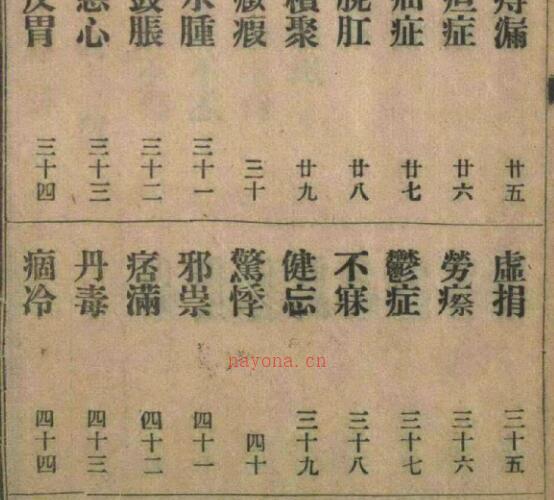 痔漏 廿五
疸症 廿六
症 廿七
脫肛 廿八
積聚 廿九
瘕 三十
水腫 三十一
鼓脹 三十二
惡心 三十三
反胃 三十四
虛捐 三十五
勞瘵 三十六
鬱症 三十七
不寐 三十八
健忘 三十九
驚悸 四十
邪祟 四十一
痞滿 四十二
丹毒 四十三
痼冷 四十四
nayona.cn